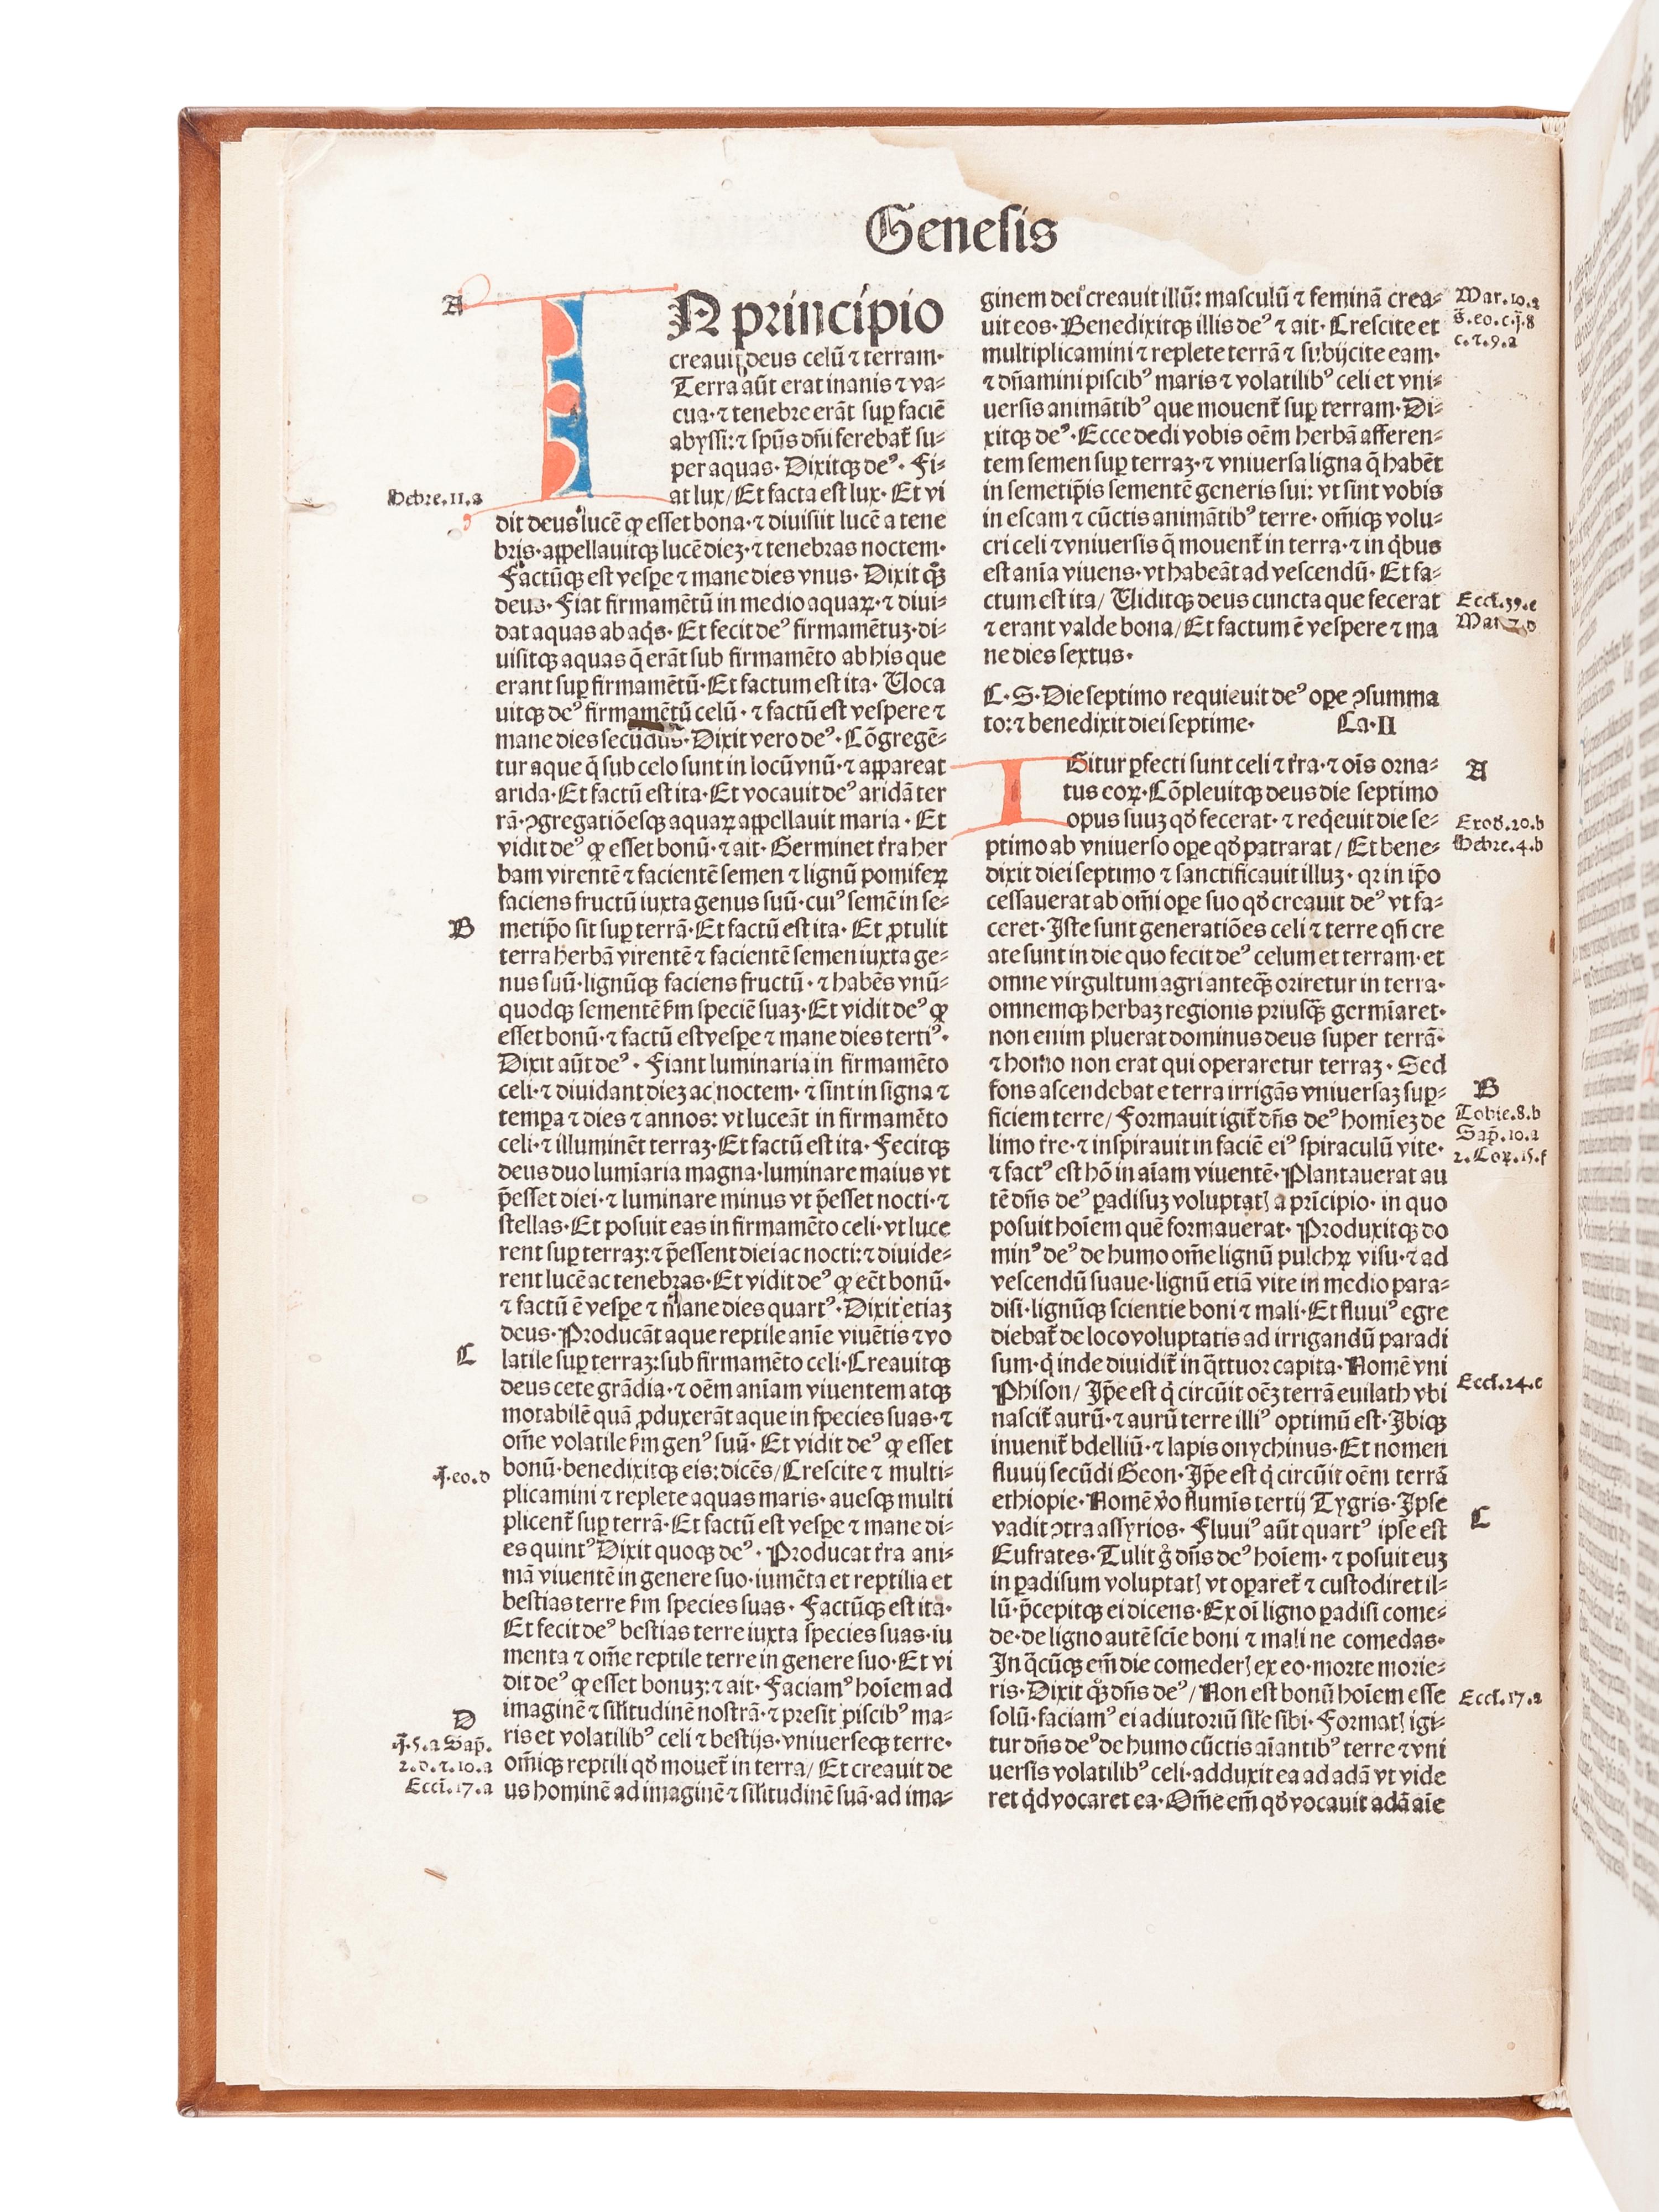 Genesis
A
IN principio
creauit deus celū ⁊ terram·
Terra aūt erat inanis ⁊ va⸗
cua·⁊ tenebre erāt suꝑ faciē
abyssi:⁊ spūs dn̄i ferebat᷑ su⸗
per aquas· Dixitqꝫ deꝰ· Fi⸗
at lux/ Et facta est lux· Et vi
Hebre.11.a
dit deus lucē ꝙ esset bona·⁊ diuisiit lucē a tene
bris·appellauitqꝫ lucē dieꝫ·⁊ tenebras noctem·
Factūqꝫ est vesꝑe ⁊ mane dies vnus· Dixit qꝫ
deus· Fiat firmamētū in medio aquaꝝ·⁊ diui⸗
dat aquas ab aq̇s· Et fecit deꝰ firmamētuꝫ·di⸗
uisitqꝫ aquas q̄ erāt sub firmamēto ab his que
erant suꝑ firmamētū·Et factum est ita· Uoca
uitqꝫ deꝰ firmamētū celū·⁊ factū est vespere ⁊
mane dies secūdus·Dixit vero deꝰ· Cōgregē⸗
tur aque q̄ sub celo sunt in locū vnū·⁊ appareat
arida·Et factū est ita·Et vocauit deꝰ aridā ter
rā·ꝯgregatiōesqꝫ aquaꝝ appellauit maria· Et
vidit deꝰ ꝙ esset bonū·⁊ ait· Germinet t̄ra her
bam virentē ⁊ facientē semen ⁊ lignū pomifeꝝ
faciens fructū iuxta genus suū·cuiꝰ semē in se⸗
B
metip̄o sit suꝑ terrā·Et factū est ita· Et ꝓtulit
terra herbā virentē ⁊ facientē semen iuxta ge⸗
nus suū·lignūqꝫ faciens fructū·⁊ habēs vnū⸗
quodqꝫ sementē ẜm speciē suaꝫ·Et vidit deꝰ ꝙ
esset bonū·⁊ factū est vesꝑe ⁊ mane dies tertiꝰ·
Dixit aūt deꝰ· Fiant luminaria in firmamēto
celi·⁊ diuidant dieꝫ ac noctem·⁊ sint in signa ⁊
temꝑa ⁊ dies ⁊ annos: vt luceāt in firmamēto
celi·⁊ illuminēt terraꝫ·Et factū est ita·Fecitqꝫ
deus duo lumīaria magna·luminare maius vt
p̄esset diei·⁊ luminare minus vt p̄esset nocti·⁊
stellas·Et posuit eas in firmamēto celi·vt luce
rent suꝑ terraꝫ:⁊ p̄essent diei ac nocti:⁊ diuide⸗
rent lucē ac tenebras·Et vidit deꝰ ꝙ eēt bonū·
⁊ factū ē vesꝑe ⁊ mane dies quartꝰ·Dixit etiaꝫ
deus·Producāt aque reptile anīe viuētis ⁊ vo
C
latile suꝑ terraꝫ:sub firmamēto celi·Creauitqꝫ
deus cete grādia·⁊ oēm anīam viuentem atqꝫ
motabilē quā ꝓduxerāt aque in species suas·⁊
om̄e volatile ẜm genꝰ suū·Et vidit deꝰ ꝙ esset
j.eo.d
bonū·benedixitqꝫ eis:dicēs/Crescite ⁊ multi⸗
plicamini ⁊ replete aquas maris·auesqꝫ multi
plicent᷑ suꝑ terrā·Et factū est vesꝑe ⁊ mane di⸗
es quintꝰ Dixit quoqꝫ deꝰ·Producat t̄ra ani⸗
mā viuentē in genere suo·iumēta et reptilia et
bestias terre ẜm species suas·Factūqꝫ est ita·
Et fecit deꝰ bestias terre iuxta species suas·iu
menta ⁊ om̄e reptile terre in genere suo·Et vi
dit deꝰ ꝙ esset bonuꝫ:⁊ ait·Faciamꝰ hoīem ad
D
imaginē ⁊ sil̄itudinē nostrā·⁊ presit piscibꝰ ma⸗
j.5.a Sap̄.
ris et volatilibꝰ celi ⁊ bestijs·vniuerseqꝫ terre·
2.d.⁊.10.a
om̄iqꝫ reptili qd̄ mouet᷑ in terra/ Et creauit de
Eccl̄i.17.a
us hominē ad imaginē ⁊ sil̄itudinē suā·ad ima⸗
ginem dei creauit illū: masculū ⁊ feminā crea⸗
Mar.10.a
uit eos·Benedixitqꝫ illis deꝰ ⁊ ait·Crescite et
s̄.eo.c.j.8
multiplicamini ⁊ replete terrā ⁊ subijcite eam·
c.⁊.9.a
⁊ dn̄amini piscibꝰ maris ⁊ volatilibꝰ celi et vni⸗
uersis animātibꝰ que mouent᷑ suꝑ terram·Di⸗
xitqꝫ deꝰ·Ecce dedi vobis oēm herbā afferen⸗
tem semen suꝑ terraꝫ·⁊ vniuersa ligna q̄ habēt
in semetip̄is sementē generis sui: vt sint vobis
in escam ⁊ cūctis animātibꝰ terre·om̄iqꝫ volu⸗
cri celi ⁊ vniuersis q̄ mouent᷑ in terra·⁊ in q̇bus
est anīa viuens·vt habeāt ad vescendū·Et fa⸗
ctum est ita/ Uiditqꝫ deus cuncta que fecerat
Eccl̄.39.c
⁊ erant valde bona/ Et factum ē vespere ⁊ ma
ne dies sextus·
C·S·Die septimo requieuit deꝰ oꝑe ꝯsumma
to:⁊ benedixit diei septime· Ca·II
IGitur ꝑfecti sunt celi ⁊ t̄ra·⁊ oīs orna⸗
A
tus eoꝝ·Cōpleuitqꝫ deus die septimo
opus suuꝫ qd̄ fecerat·⁊ req̇euit die se⸗
Exod.20.b
ptimo ab vniuerso oꝑe qd̄ patrarat/ Et bene⸗
Hebre.4.b
dixit diei septimo ⁊ sanctificauit illuꝫ·qꝛ in ip̄o
cessauerat ab om̄i oꝑe suo qd̄ creauit deꝰ vt fa⸗
ceret·Iste sunt generatiōes celi ⁊ terre qn̄ cre
ate sunt in die quo fecit deꝰ celum et terram·et
omne virgultum agri anteqꝫ̄ oriretur in terra·
omnemqꝫ herbaꝫ regionis priusqꝫ̄ germīaret·
non enim pluerat dominus deus super terrā·
⁊ homo non erat qui operaretur terraꝫ·Sed
fons ascendebat e terra irrigās vniuersaꝫ suꝑ⸗
B
ficiem terre/ Formauit igit᷑ dn̄s deꝰ homīeꝫ de
Tobie.8.b
limo t̄re·⁊ inspirauit in faciē eiꝰ spiraculū vite·
Sap̄.10.a
⁊ factꝰ est hō in aīam viuentē·Plantauerat au
2.Coꝝ.15.f
tē dn̄s deꝰ ꝑadisuꝫ voluptatꝭ a prīcipio·in quo
posuit hoīem quē formauerat·Produxitqꝫ do
minꝰ deꝰ de humo om̄e lignū pulchꝝ visu·⁊ ad
vescendū suaue·lignū etiā vite in medio para⸗
disi·lignūqꝫ scientie boni ⁊ mali·Et fluuiꝰ egre
diebat᷑ de loco voluptatis ad irrigandū paradi
sum·q̇ inde diuidit᷑ in q̄ttuor capita·Nomē vni
Phison/ Ip̄e est q̇ circūit oēꝫ terrā euilath vbi
Eccl̄.24.c
nascit᷑ aurū·⁊ aurū terre illiꝰ optimū est·Ibiqꝫ
inuenit᷑ bdelliū·⁊ lapis onychinus·Et nomen
fluuij secūdi Geon·Ip̄e est q̇ circūit oēm terrā
ethiopie·Nomē v̄o flumīs tertij Tygris·Ipse
vadit ꝯtra assyrios·Fluuiꝰ aūt quartꝰ ipse est
C
Eufrates·Tulit g̊ dn̄s deꝰ hoīem·⁊ posuit euꝫ
in ꝑadisum voluptatꝭ vt oꝑaret᷑ ⁊ custodiret il⸗
lū·p̄cepitqꝫ ei dicens·Ex oī ligno ꝑadisi come⸗
de·de ligno autē scīe boni ⁊ mali ne comedas·
In q̄cūqꝫ em̄ die comederꝭ ex eo·morte morie⸗
ris·Dixit qꝫ dn̄s deꝰ/ Non est bonū hoīem esse
Eccl̄.17.a
solū·faciamꝰ ei adiutoriū sil̄e sibi·Formatꝭ igi⸗
tur dn̄s deꝰ de humo cūctis aīantibꝰ terre ⁊ vni
uersis volatilibꝰ celi·adduxit ea ad adā vt vide
ret q̇d vocaret ea·Om̄e em̄ qd̄ vocauit adā aīe